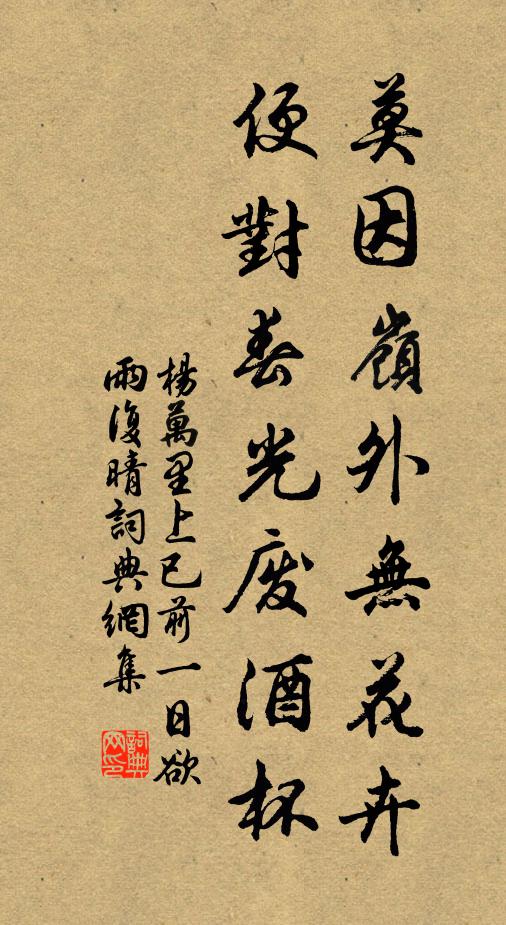 莫因嶺外無花卉
便對春光廢酒杯
楊萬里上巳前一日欲
雨復晴詞典網集
詞典网印